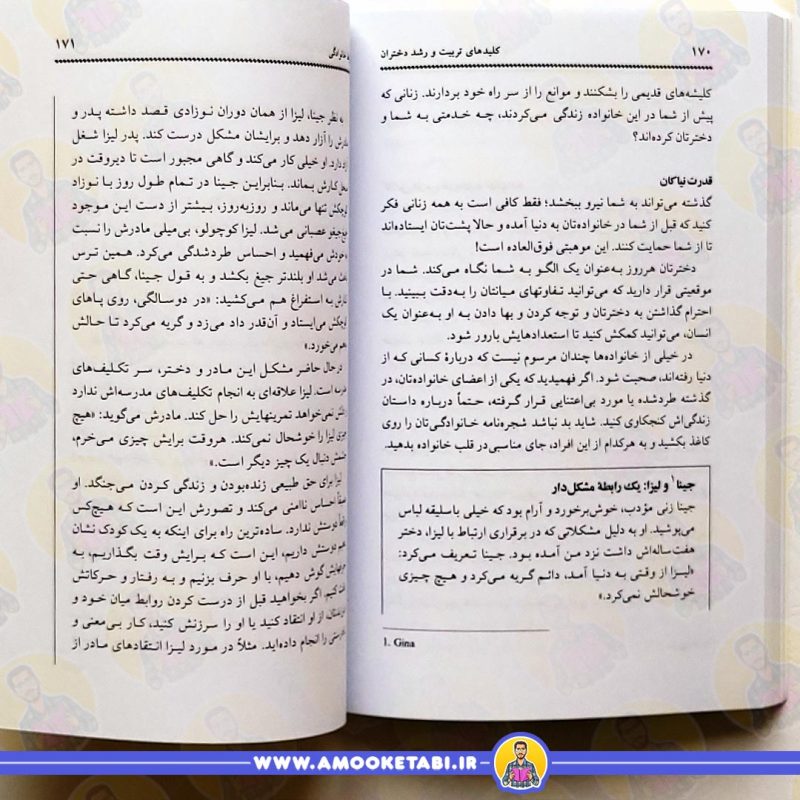 ۱۷۰
کلیدهای تربیت و رشد دختران
کلیشه‌های قدیمی را بشکنند و موانع را از سر راه خود بردارند. زنانی که
پیش از شما در این خانواده زندگی می‌کردند، چه خدمتی به شما و
دخترتان کرده‌اند؟
قدرت نیاکان
گذشته می‌تواند به شما نیرو ببخشد؛ فقط کافی است به همه زنانی فکر
کنید که قبل از شما در خانواده‌تان به دنیا آمده و حالا پشت‌تان ایستاده‌اند
تا از شما حمایت کنند. این موهبتی فوق‌العاده است!
دخترتان هرروز به‌عنوان یک الگو به شما نگاه می‌کند. شما در
موقعیتی قرار دارید که می‌توانید تفاوتهای میانتان را به‌دقت ببینید. با
احترام گذاشتن به دخترتان و توجه کردن و بها دادن به او به‌عنوان یک
انسان، می‌توانید کمکش کنید تا استعدادهایش بارور شود.
در خیلی از خانواده‌ها چندان مرسوم نیست که دربارهٔ کسانی که از
دنیا رفته‌اند، صحبت شود. اگر فهمیدید که یکی از اعضای خانواده‌تان، در
گذشته طردشده یا مورد بی‌اعتنایی قرار گرفته، حتماً درباره داستان
زندگی‌اش کنجکاوی کنید. شاید بد نباشد شجره‌نامه خانوادگی‌تان را روی
کاغذ بکشید و به هرکدام از این افراد، جای مناسبی در قلب خانواده بدهید.
جینا۱ و لیزا: یک رابطهٔ مشکل‌دار
جینا زنی مؤدب، خوش‌برخورد و آرام بود که خیلی باسلیقه لباس
می‌پوشید. او به دلیل مشکلاتی که در برقراری ارتباط با لیزا، دختر
هفت ساله‌اش داشت نزد من آمده بود. جینا تعریف می‌کرد:
«لیزا از وقتی به دنیا آمد، دائم گریه می‌کرد و هیچ چیزی
خوشحالش نمی‌کرد.»
1. Gina
۱۷۱
به نظر جینا، لیزا از همان دوران نوزادی قصد داشته پدر و
مادرش را آزار دهد و برایشان مشکل درست کند. پدر لیزا شغل
دارد. او خیلی کار می‌کند و گاهی مجبور است تا دیروقت در
محل کارش بماند. بنابراین جینا در تمام طول روز با نوزاد
کوچکش تنها می‌ماند و روزبه‌روز، بیشتر از دست این موجود
جیغ‌جیغو عصبانی می‌شد. لیزا کوچولو، بی‌میلی مادرش را نسبت
به خودش می‌فهمید و احساس طردشدگی می‌کرد. همین ترس
باعث می‌شد او بلندتر جیغ بکشد و به قول جینا، گاهی حتی
کارش به استفراغ هم می‌کشید: «در دوسالگی، روی پاهای
کوچکش می‌ایستاد و آن‌قدر داد می‌زد و گریه می‌کرد تا حالش
به هم می‌خورد.»
در حال حاضر مشکل این مادر و دختر، سر تکلیف‌های
مدرسه است. لیزا علاقه‌ای به انجام تکلیف‌های مدرسه‌اش ندارد
دلش نمی‌خواهد تمرینهایش را حل کند. مادرش می‌گوید: «هیچ
چیزی لیزا را خوشحال نمی‌کند. هروقت برایش چیزی می‌خرم،
دنبال یک چیز دیگر است.»
لیزا برای حق طبیعی زنده‌بودن و زندگی کردن می‌جنگد. او
احساس ناامنی می‌کند و تصورش این است که هیچ‌کس
دوستش ندارد. ساده‌ترین راه برای اینکه به یک کودک نشان
دهیم دوستش داریم، این است که برایش وقت بگذاریم، به
حرفهایش گوش دهیم، با او حرف بزنیم و به رفتار و حرکاتش
کنیم. اگر بخواهید قبل از درست کردن روابط میان خود و
از او انتقاد کنید یا او را سرزنش کنید، کار بی‌معنی و
را انجام داده‌اید. مثلاً در مورد لیزا انتقادهای مادر از
WWW.AMOOKETABI.IR